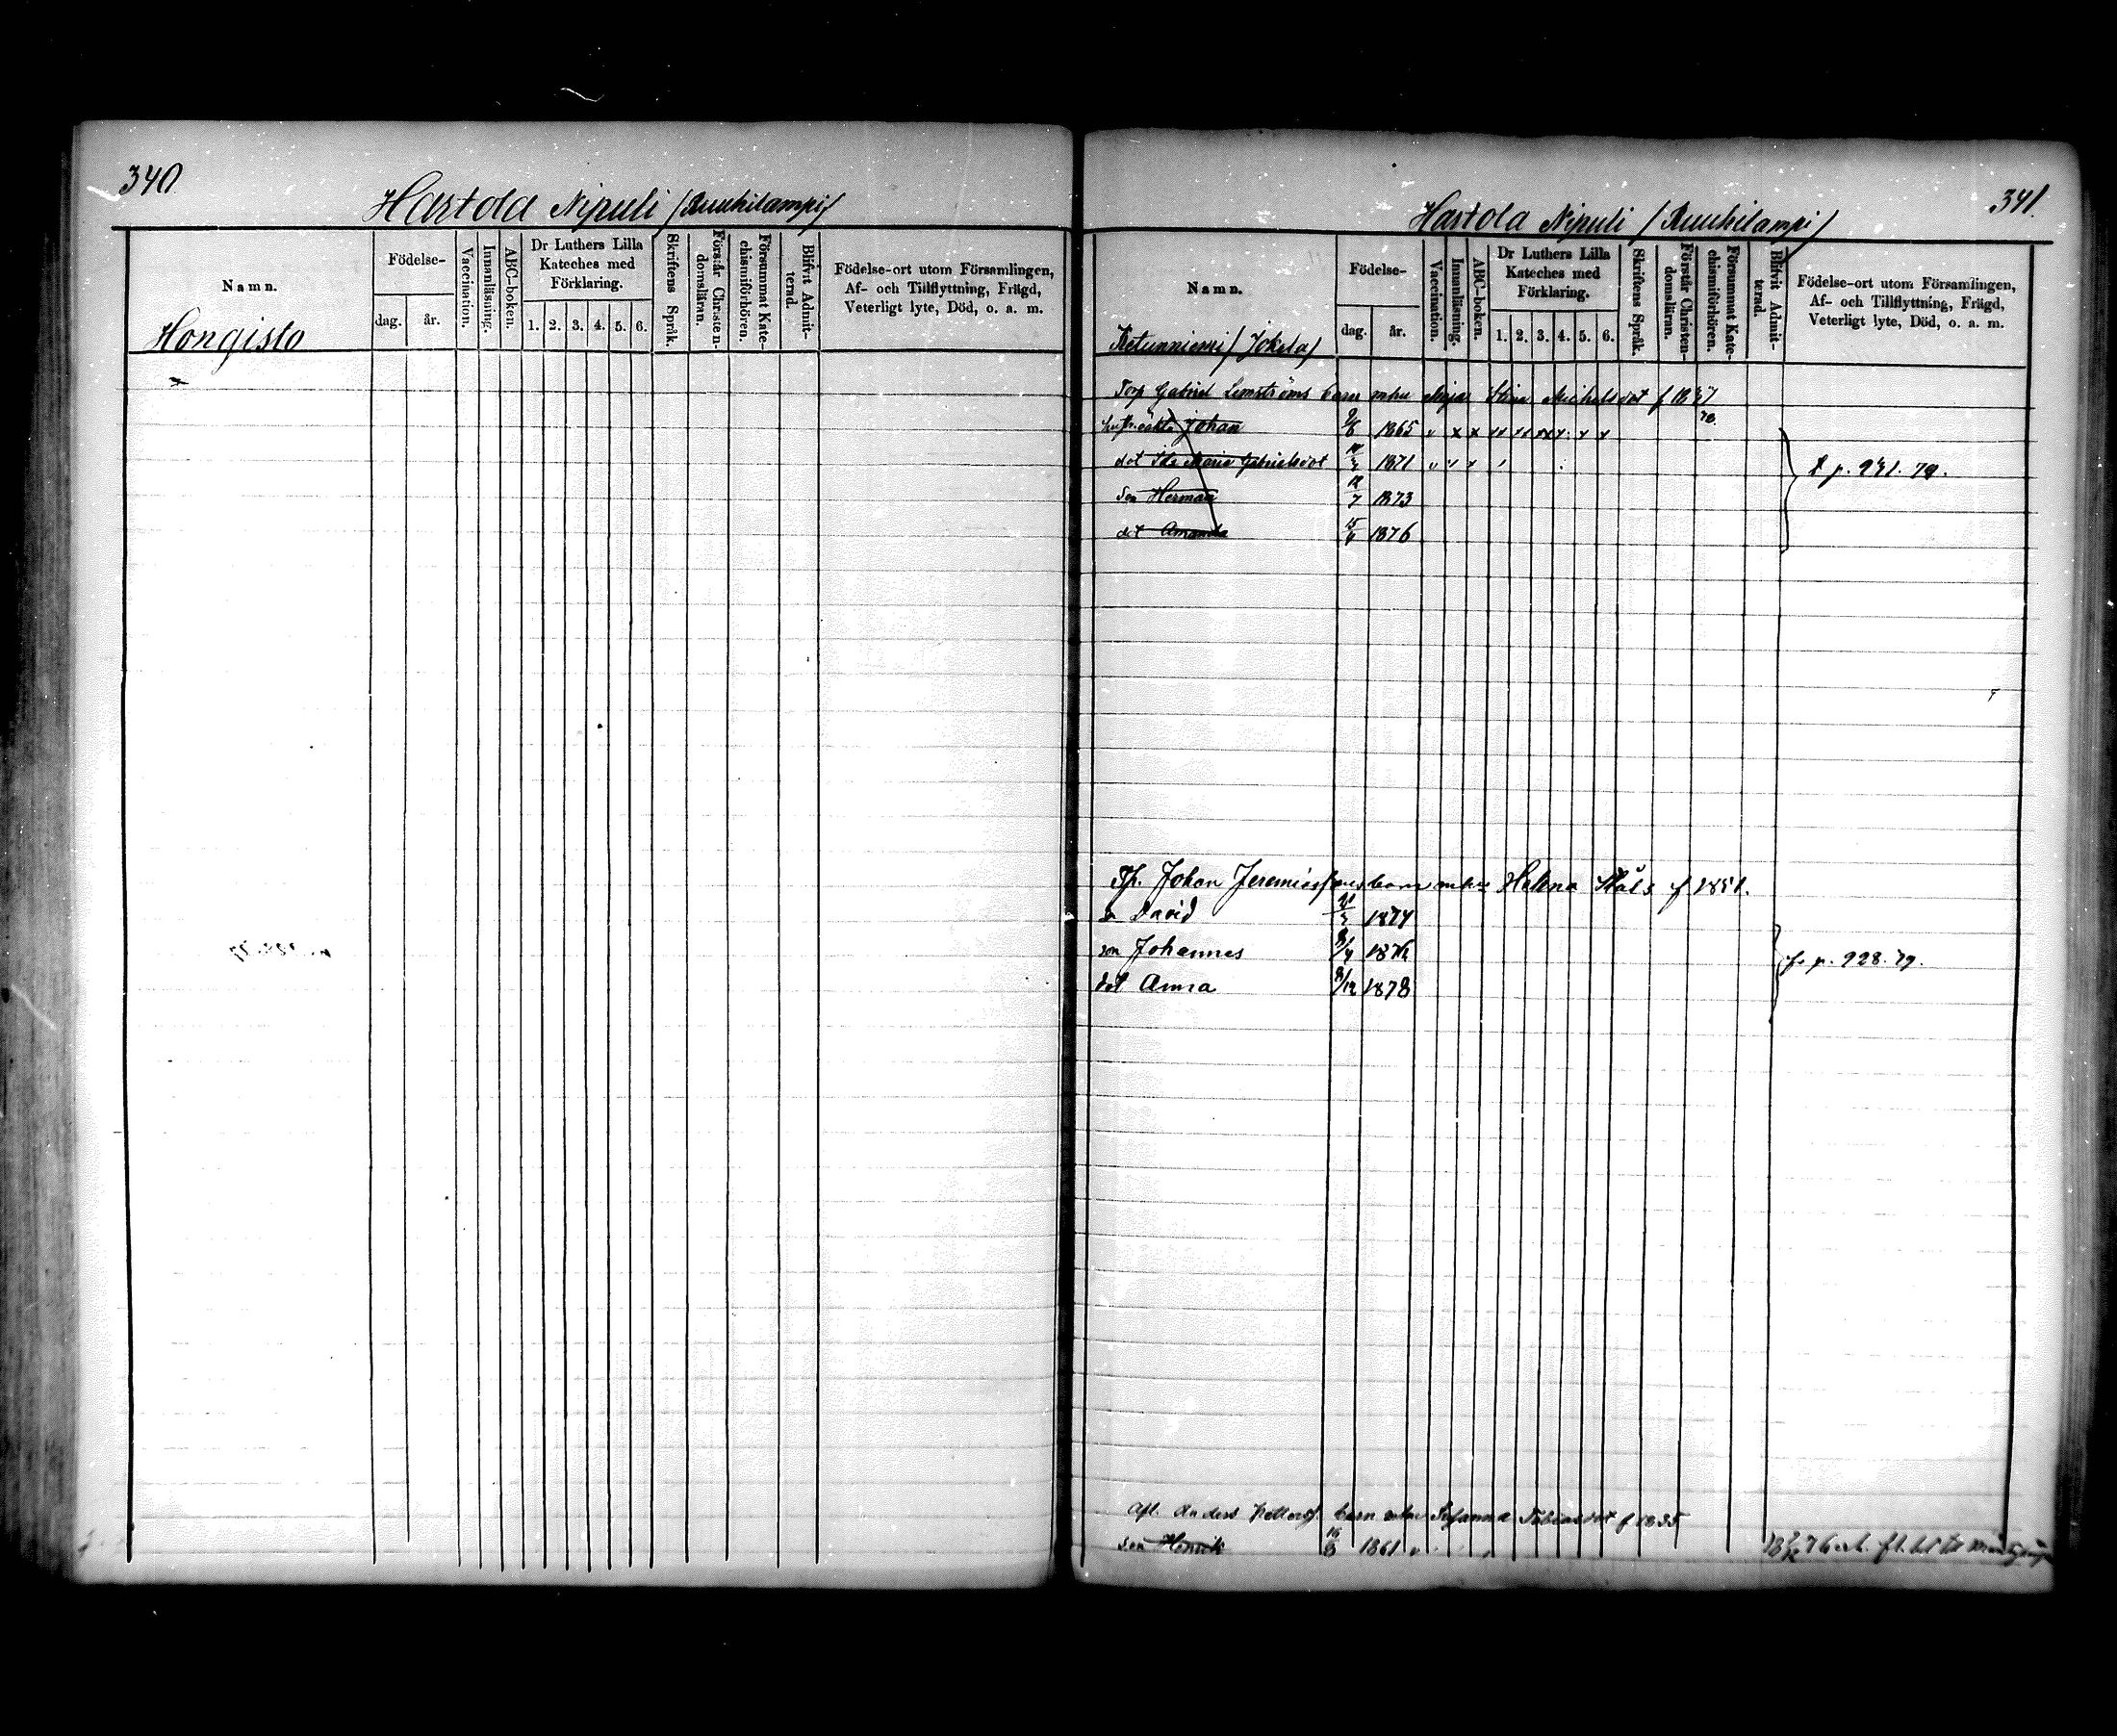 340
Hartola Nipuli /Ruuhilampi/
Namn.
Födelse-
dag. år.
Vaccination.
Innanläsning.
ABC-boken.
Dr Luthers Lilla Kateches med Förklaring.
1. 2. 3. 4. 5. 6.
Skriftens Språk.
Förstår Christendomsläran.
Försummat Katechismiförhören.
Blifvit Admitterad.
Födelse-ort utom Församlingen,
Af- och Tillflyttning, Frägd,
Veterligt lyte, Död, o. a. m.
Hongisto
341.
Hartola Nipuli /Ruuhilampi/
Namn.
Födelse-
dag. år.
Vaccination.
Innanläsning.
ABC-boken.
Dr Luthers Lilla Kateches med Förklaring.
1. 2. 3. 4. 5. 6.
Skriftens Språk.
Förstår Christendomsläran.
Försummat Katechismiförhören.
Blifvit Admitterad.
Födelse-ort utom Församlingen,
Af- och Tillflyttning, Frägd,
Veterligt lyte, Död, o. a. m.
Ketunniemi /Jokela/
Torp Gabriel Lemströms barn m hu Maja Stina Michelsdot f 18
Johan 1865
dot Ida Maria Gabrielsdot 1871
Son Herman 12/7 1873
dot Amanda 1876
p. 931. 79.
Tp. Johan Jeremiass barn m hu Helena Ståls f 1851.
David 1874
son Johannes 1876
dot Anna 1878
p. 928. 79.
Afl. Anders barn m hu Susanna Tobiasdot f 1835
son Henrik 1861